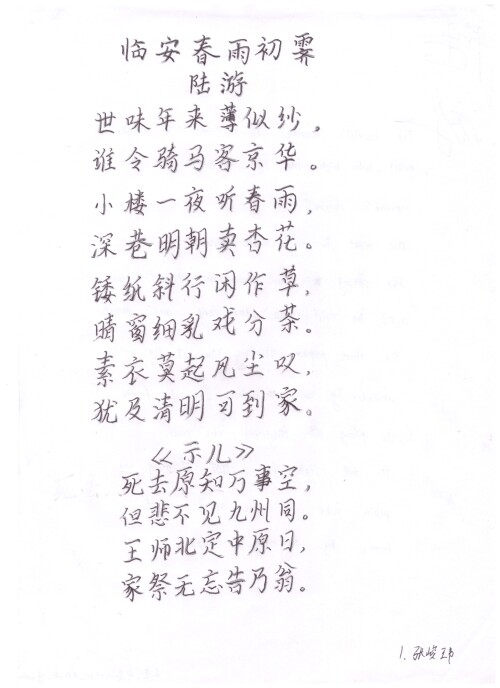 临安春雨初霁
陆游
世味年来薄似纱，
谁令骑马客京华。
小楼一夜听春雨，
深巷明朝卖杏花。
矮纸斜行闲作草，
晴窗细乳戏分茶。
素衣莫起风尘叹，
犹及清明可到家。
《示儿》
死去原知万事空，
但悲不见九州同。
王师北定中原日，
家祭无忘告乃翁。
1. 张峻玮